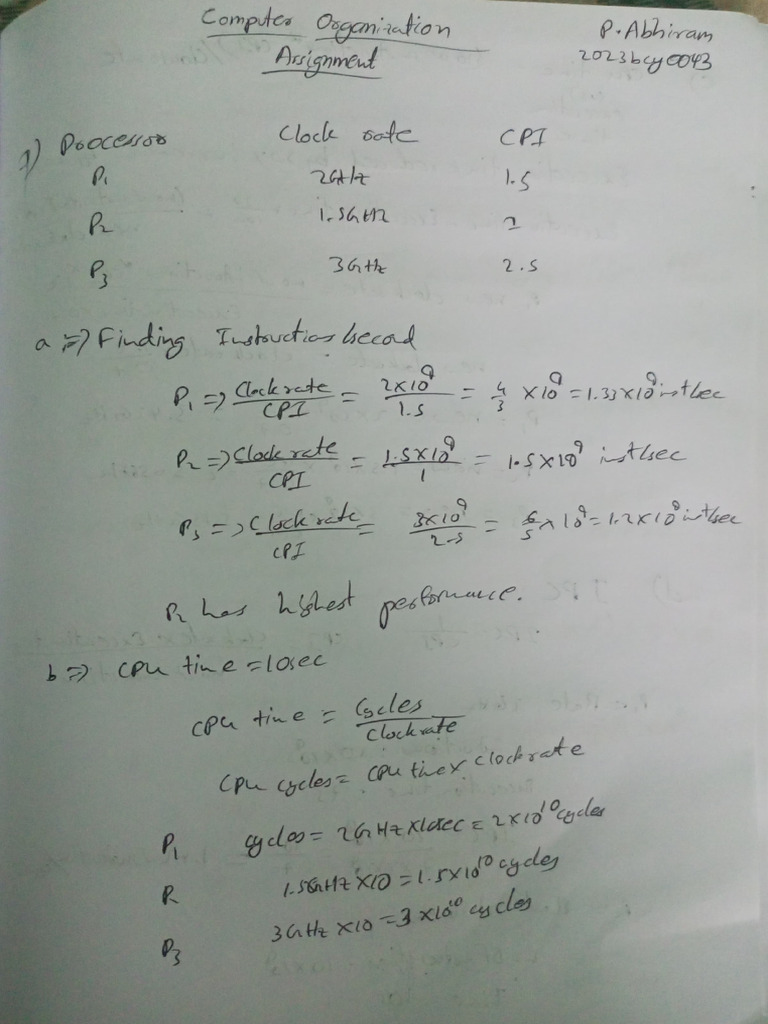 Computer Organization
Assignment
P. Abhiram
2023bcy0043
1) Processor Clock rate CPI
P₁ 2GHz 1.5
P₂ 1.5GHz 1
P₃ 3GHz 2.5
a ⇒ Finding Instructions/second
P₁ ⇒ Clock rate/CPI = 2×10⁹/1.5 = 4/3 ×10⁹ = 1.33×10⁹ inst/sec
P₂ ⇒ Clock rate/CPI = 1.5×10⁹/1 = 1.5×10⁹ inst/sec
P₃ ⇒ Clock rate/CPI = 3×10⁹/2.5 = 6/5 × 10⁹ = 1.2×10⁹ inst/sec
P₂ has highest performance.
b ⇒ CPU time = 10sec
CPU time = Cycles/Clockrate
CPU cycles = CPU time × clock rate
P₁ cycles = 2GHz×10sec = 2×10¹⁰ cycles
P₂ 1.5GHz ×10 = 1.5×10¹⁰ cycles
P₃ 3GHz ×10 = 3×10¹⁰ cycles